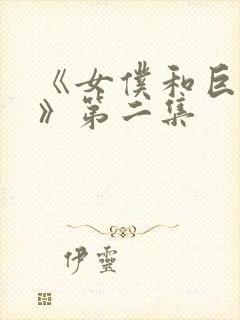 《女僕和巨
》第二集
伊靈